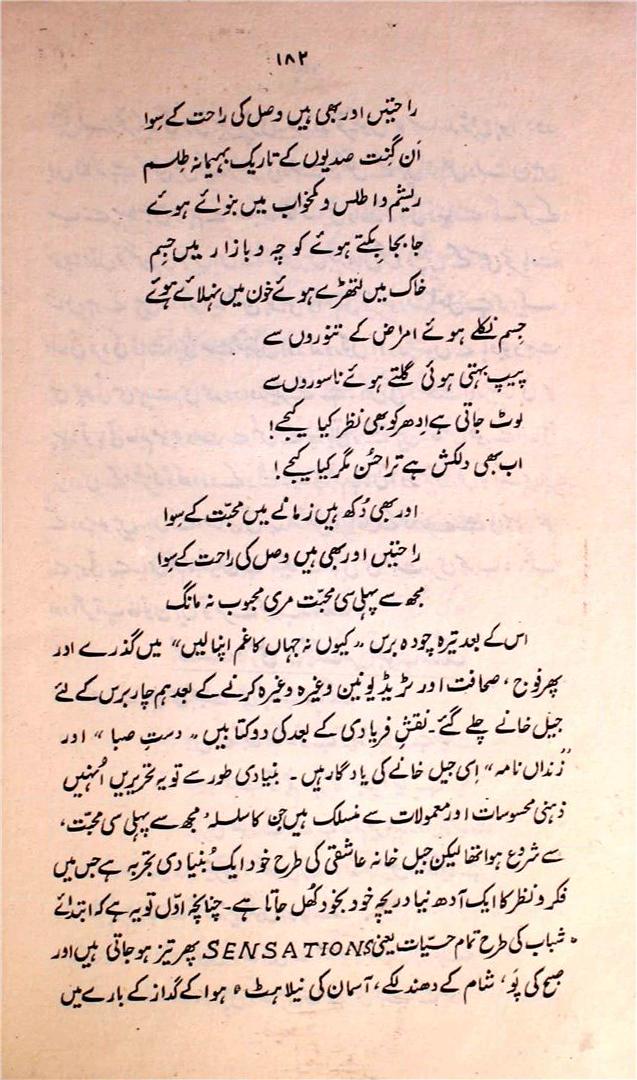 ۱۸۲
راحتیں اور بھی ہیں وصل کی راحت کے سِوا
اَن گِنت صدیوں کے تاریک بہیمانہ طلسم
ریشم و اطلس و کمخواب میں بنوائے ہوئے
جا بجا بکتے ہوئے کوچہ و بازار میں جسم
خاک میں لتھڑے ہوئے خون میں نہلائے ہوئے
جسم نکلے ہوئے امراض کے تنوروں سے
پیپ بہتی ہوئی گلتے ہوئے ناسوروں سے
لوٹ جاتی ہے اِدھر کو بھی نظر کیا کیجے!
اب بھی دلکش ہے ترا حُسن مگر کیا کیجے!
اور بھی دُکھ ہیں زمانے میں محبّت کے سِوا
راحتیں اور بھی ہیں وصل کی راحت کے سِوا
مجھ سے پہلی سی محبّت مری محبوب نہ مانگ
اس کے بعد تیرہ چودہ برس "کیوں نہ جہاں کا غم اپنا لیں" میں گذرے اور
پھر فوج، صحافت اور ٹریڈ یونین وغیرہ وغیرہ کرنے کے بعد ہم چار برس کے لئے
جیل خانے چلے گئے۔ نقشِ فریادی کے بعد کی دو کتابیں "دستِ صبا" اور
"زنداں نامہ" اِسی جیل خانے کی یادگار ہیں۔ بنیادی طور سے تو یہ تحریریں اُنہیں
ذہنی محسوسات اور معمولات سے منسلک ہیں جن کا سلسلہ' مجھ سے پہلی سی محبّت،
سے شروع ہوا تھا لیکن جیل خانہ عاشقی کی طرح خود ایک بُنیادی تجربہ ہے جس میں
فکر و نظر کا ایک آدھ نیا دریچہ خود بخود کُھل جاتا ہے۔ چنانچہ اوّل تو یہ ہے کہ ابتدائے
شباب کی طرح تمام حسّیات یعنی SENSATIONS پھر تیز ہو جاتی ہیں اور
صبح کی پَو، شام کے دھندلکے، آسمان کی نیلاہٹ، ہوا کے گداز کے بارے میں